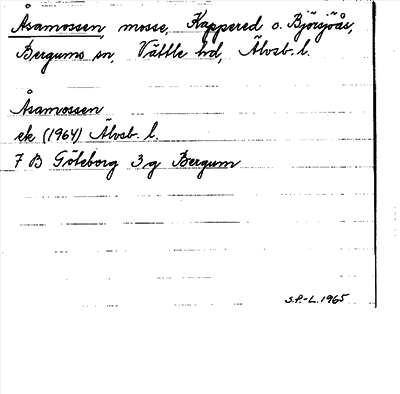 Åsamossen, mosse, Kappered o. Björsjöås,
Bergums sn, Vättle hd, Älvsb. l.
Åsamossen
ek (1964) Älvsb. l.
7 B Göteborg 3 g Bergum
S.P.-L. 1965